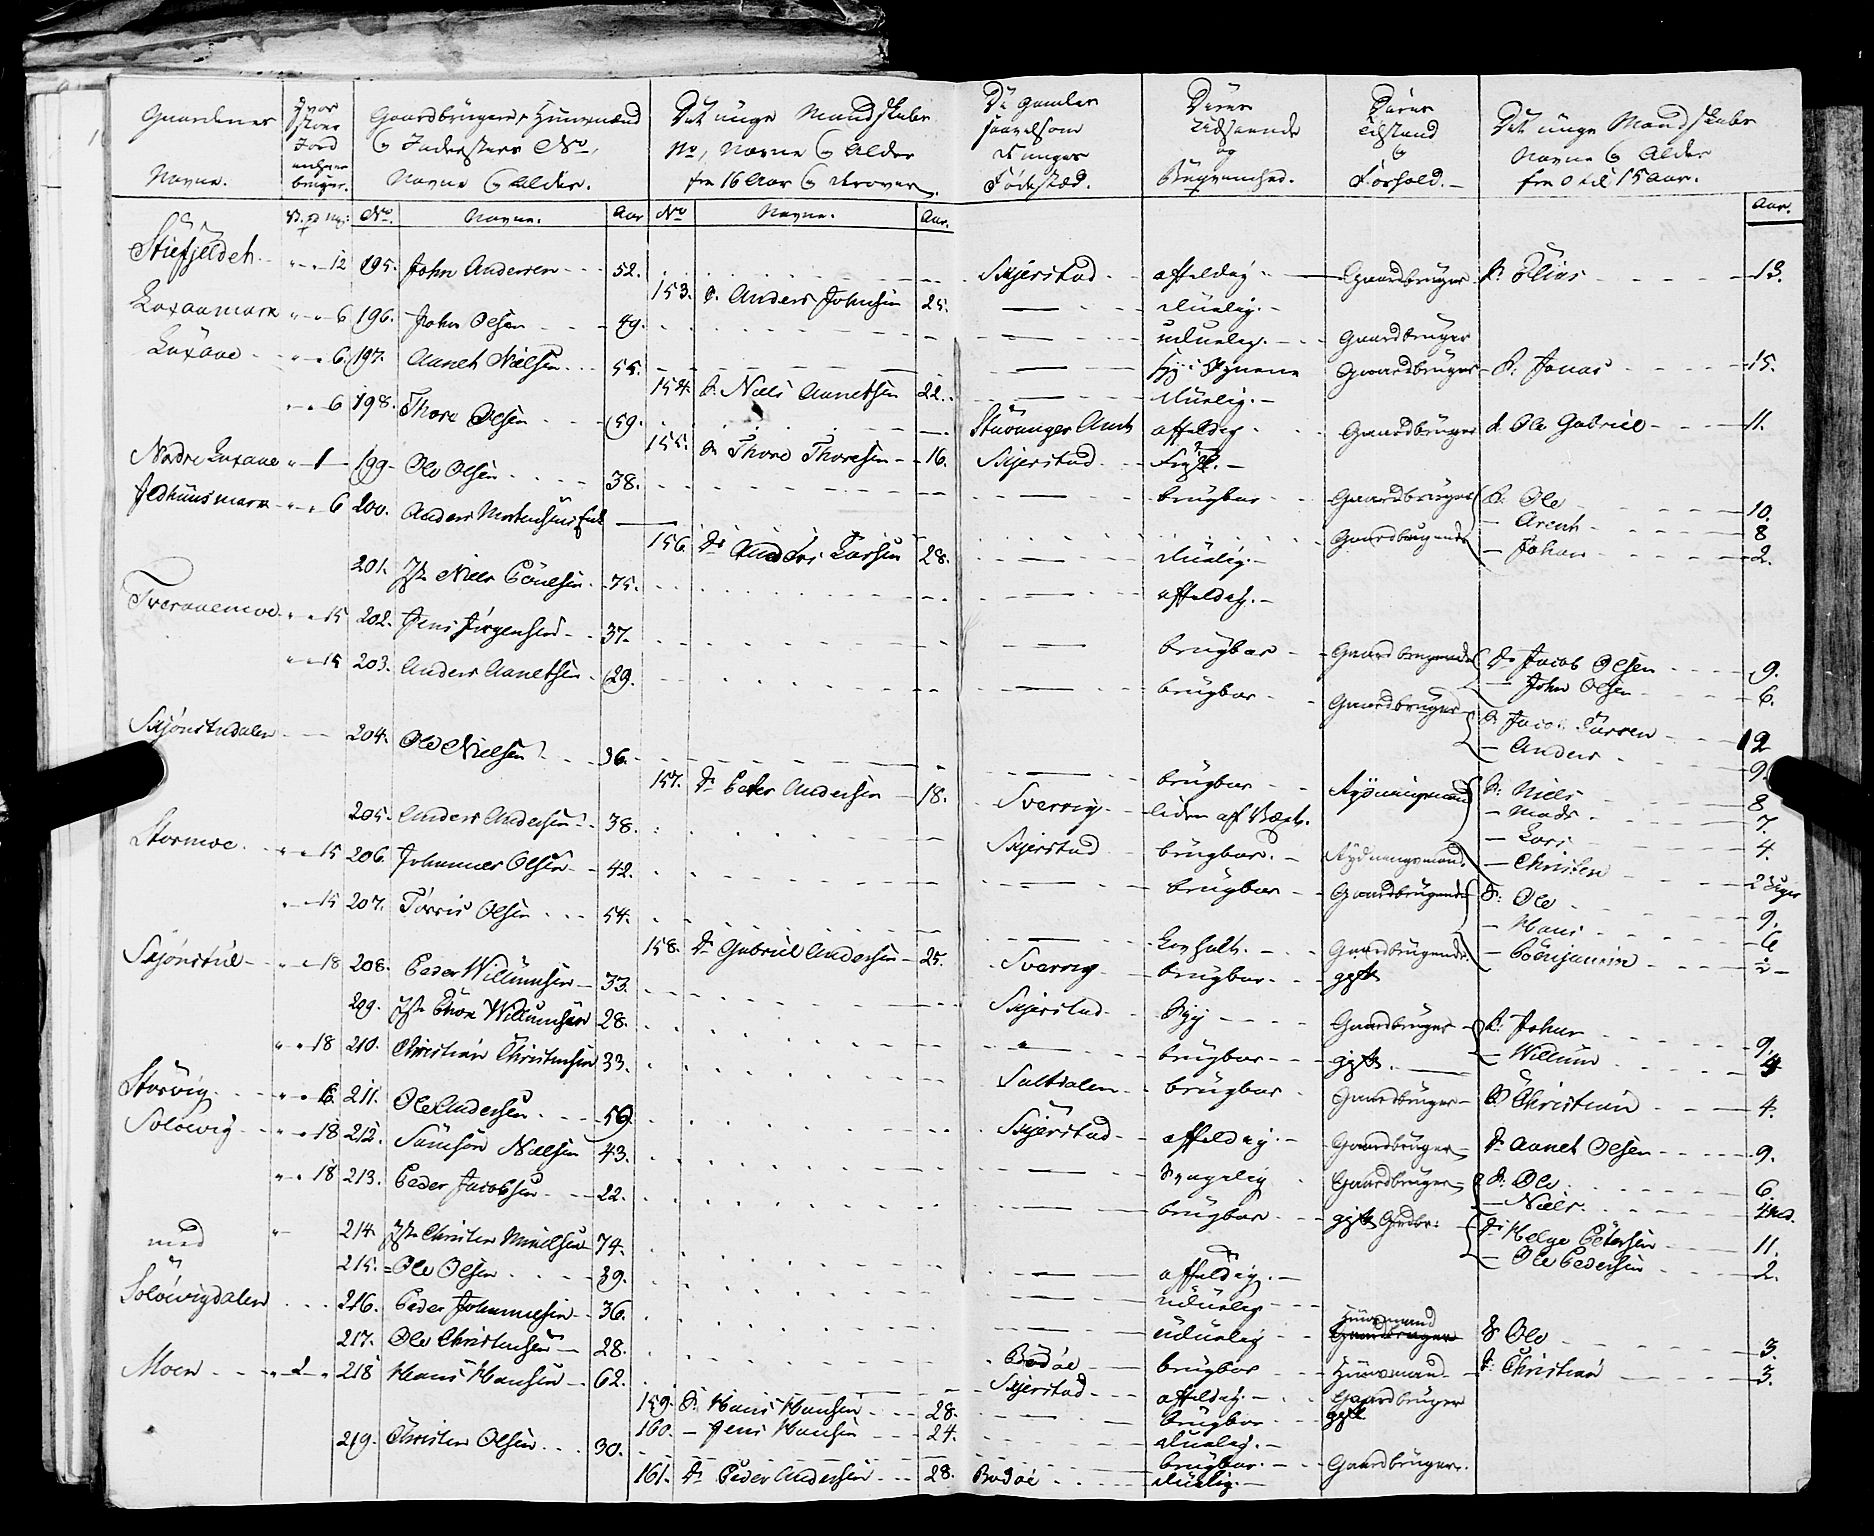 Gaardenes Navne. | Hvor stor Jord enhver bruger. | Gaardbrugere, Huusmænd og Inderster No, Navne og Alder. | Det unge Mandskabs No, Navne og Alder fra 16 Aar og derover. | De Gamles saavelsom Unges Fødested. | Deres Udseende og Beqvemhed. | Deres Tilstand og Forhold. | Det unge Mandskabs Navne og Alder fra 0 til 15 Aar.
No. | Navne. | Aar | No | Navne. | Aar. | Aar.
Stiefjeldet 12 195. John Andersen 52. Skjerstad affeldig Gaardbruger S. Elias 13.
153. S. Anders Johnsen 25. duelig.
Luxaamark 6 196. John Olsen 49. uduelig. Gaardbruger
Luxaae 6. 197. Aanet Nielsen 55. Gaardbruger S. Jonas 15.
154. S. Niels Aanetsen 22. duelig.
6 198. Thore Olsen 59. Stavanger Amt affeldig Gaardbruger S. Ole Gabriel 11.
155. S. Thore Thoresen 16. Skjerstad
Nordre Luxaae 1 199 Ole Olsen 38. brugbar Gaardbruger S. Ole 10.
— Arent 8
— Johan 2.
6 200. Anders Mortensens Enke Gaardbrugende
156. Anders Larsen 28. duelig.
201. Niels Poulsen 75. affeldig.
Tveraaemoe 15 202. Jens Jørgensen 37. brugbar Gaardbrugende Jacob Olsen 9.
— John Olsen 6.
15 203. Anders Aanetsen 29. brugbar Gaardbruger 12
— Anders 9.
Skjønstudalen 204. Ole Nielsen 36. brugbar Rydningsmand S. Niels 8
— Mads 7.
— Lars 4.
— Christen
157. Peder Andersen 18. Sverrig
205. Anders Andersen 38. Skjerstad brugbar. Rydningsmand
Stormoe 15 206. Johannes Olsen 42. brugbar Gaardbrugende S. Ole 9.
— Hans 6
— Benjamin
15 207. Torris Olsen 54. Gaardbrugende
158. Gabriel Andersen 25. Sverrig brugbar gift
Skjønstue 18 208. Peder Willumsen 33. Skjerstad Gaardbruger S. Johan 9.
— Willum 4
209. Willumsen 28. brugbar gift.
18 210. Christian Christensen 33. Saltdalen brugbar Gaardbruger S Christian 4.
Storvig 6. 211. Ole Andersen 59. Skjerstad affeldig. Gaardbruger Aanet Olsen 9.
Soløevig 18 212. Samson Nielsen 43. Svagelig Gaardbruger S. Ole 6.
— Niels.
18 213. Peder Jacobsen 22. brugbar gift Gdbr: Helge Petersen 11.
— Ole Pedersen 2.
med 214. Christen 74. affeldig.
215. Ole Olsen 39. uduelig
Soløevigdalen 216. Peder Johannesen 36. uduelig Huusmand Gaardbruger S Ole 3.
217. Ole Christensen 28. Bodøe brugbar Huusmand S. Christian 3.
Moen 2 218 Hans Hansen 62. Skjerstad affeldig. Gaardbruger
159. S. Hans Hansen 28. brugbar gift
160. — Jens Hansen 24. duelig.
219. Christen Olsen 30. brugbar. Gaardbruger.
161. Peder Andersen 28. Bodøe duelig.